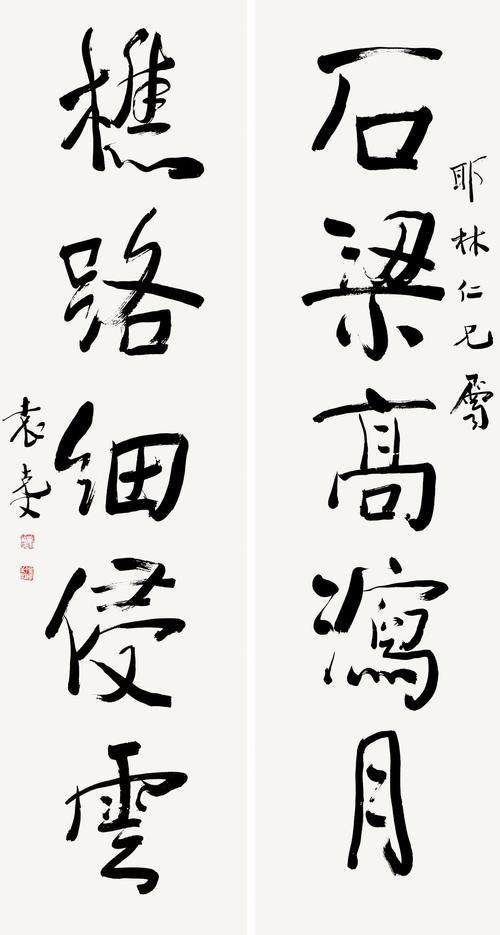 耶林仁兄
石梁高瀉月
樵路細侵雲
袁克文